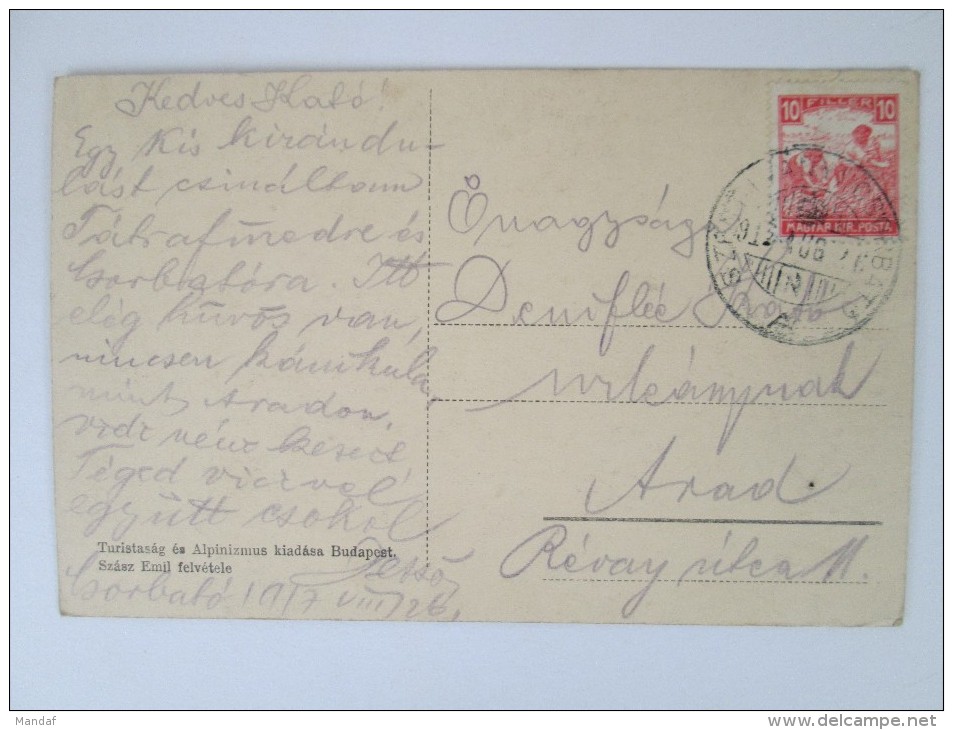 Kedves Kató!
Egy kis kirándu-
lást csináltam
Tátrafüredre és
Csorbatóra. Itt
elég hűvös van,
nincsen kánikula,
mint Aradon.
Téged
együtt csókol
Jenő
Csorbató 1917 VIII/26.
Turistaság és Alpinizmus kiadása Budapest.
Szász Emil felvétele
10 FILLÉR 10
MAGYAR KIR. POSTA
Őnagysága
Deniflée Kató
urleánynak
Arad
Révay útca 11.
Mandaf
www.delcampe.net